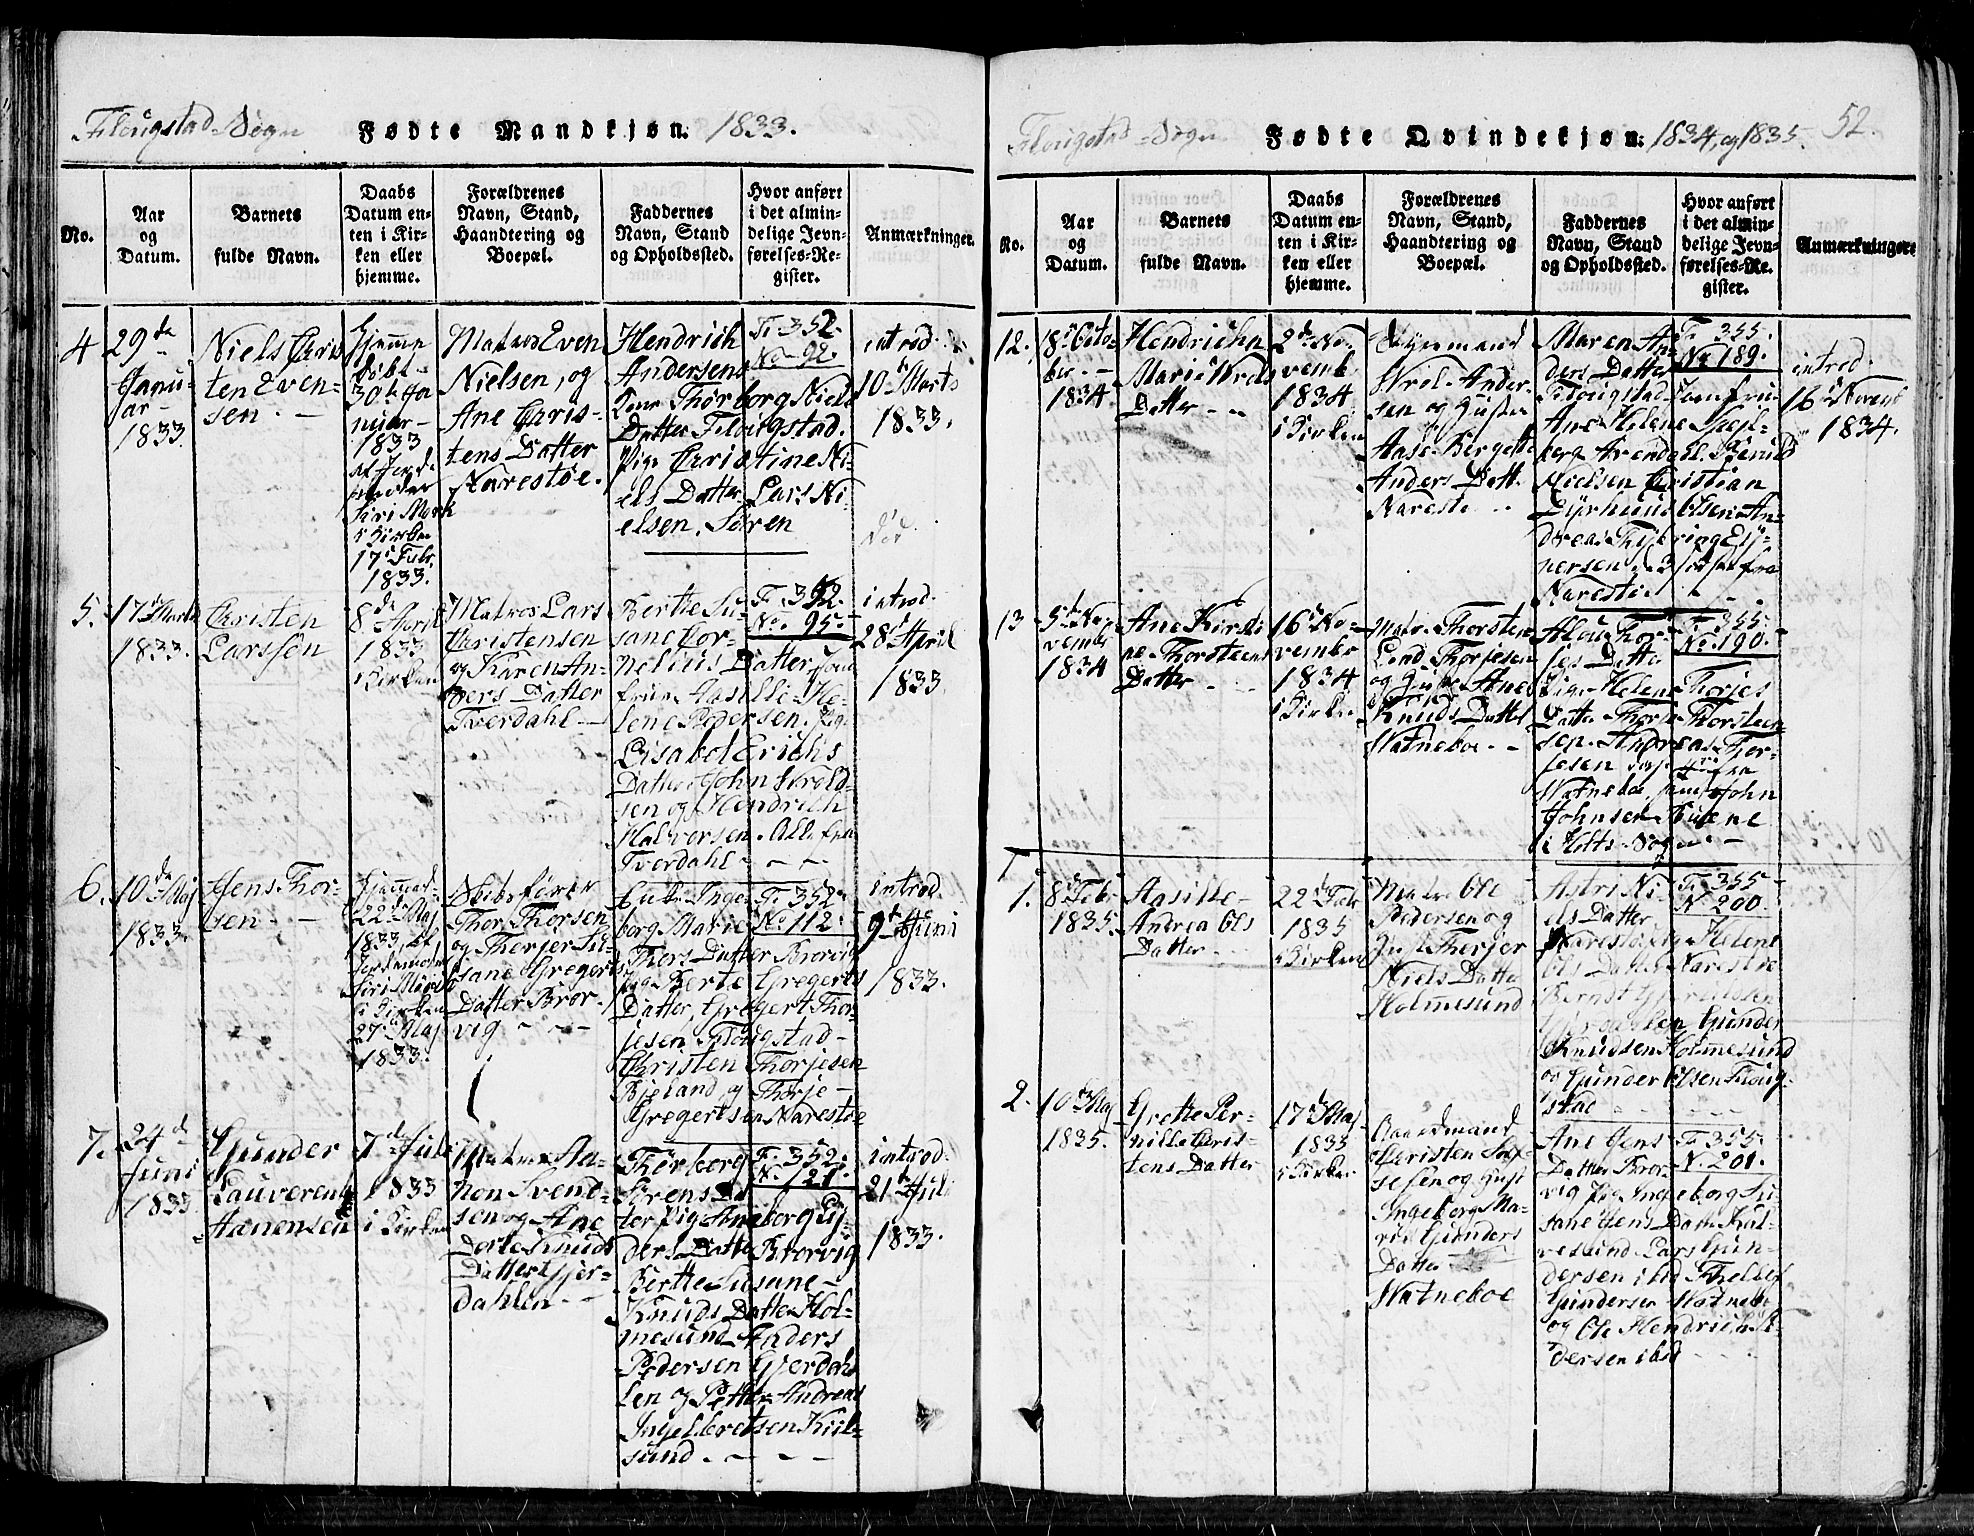 Flougstad-Sogn Fødte Mandkjøn. 1833.
No.
Aar
og
Datum.
Barnets
fulde Navn.
Daabs
Datum en-
ten i Kir-
ken eller
hjemme.
Forældrenes
Navn, Stand,
Haandtering og
Boepæl.
Faddernes
Navn, Stand
og Opholdssted.
Hvor anført
i det almin-
delige Jevn-
førelses-Re-
gister.
Anmærkninger.
4
29de
Janu-
ar-
1833.
Niels Chris
ten Even-
sen. -
hjemme
døbt
30te Ja
nuar-
1833
af Jorde
moder
Siri Mørk
i Kirken
17de Febr.
1833.
Matros Even
Nielsen, og
Ane Chris-
tens Datter
Narestøe.
Hendrich
Andersens
Kone Thorborg Niels
Datter Flougstad.
Pige Christine Ni-
els Datter. Lars Ni-
elsen. Søren
F: 352.
No 92.
introd.
10de Marts
1833.
5.
17de Marts
1833.
Christen
Larssen
8de April
1833
i Kirken
Matros Lars
Christensen
og Karen An-
ders Datter
Tverdahl -
Berthe Su-
sane Cor-
nelius Datter Jom
frue Aasille He-
lene Pedersen. Pige
Elisabet Erichs
Datter John Wrold-
sen og Hendrich
Halversen. Alle fra
Tverdahl - -
F. 352.
No. 95.
introd.
28de April
1833.
6.
10de Maj
1833.
Jens Thor-
sen -
hjemme
22de Maj
1833, af
Jordemoder
Siri Mørk
i Kirken
27de Maj
1833.
Skibsfører
Thor Thorsen
og Thorjer Su-
sane Gregerts
Datter Bror-
vig - - -
Enke Inge
borg Marie
Thors Datter Brorvig
Pig. Berte Gregerts
Datter, Gregert Thor-
jesen Flougstad -
Christen Thorjesen
Bjeland og Thorje -
Gregertsen Narestøe
F: 352.
No 112.
introd.
9de Juni
1833.
7.
24de
Juni
1833
Gunder
Lauverents
Aanensen
7de Juli
1833
i Kirken
Matros Aa-
non Svend-
sen og Ane
Dorte Knuds
Datter Gjer-
dahlen - -
Thorborg
Sørens Dat
ter Pig. Aneborg Gun-
ders Datter Brorvig
Berthe Susane -
Knuds Datter Hol-
mesund Anders
Pedersen Gjerdahl
len og Petter Andreas
Ingelbretsen Kiil-
sund. - - -
F. 352.
No 127.
introd.
21de Juli
1833.
Flougstad-Sogn Fødte Qvindekjøn. 1834, og 1835. 52.
No.
Aar
og
Datum.
Barnets
fulde Navn.
Daabs
Datum en-
ten i Kir-
ken eller
hjemme.
Forældrenes
Navn, Stand,
Haandtering og
Boepæl.
Faddernes
Navn, Stand
og Opholdssted.
Hvor anført
i det almin-
delige Jevn-
førelses-Re-
gister.
Anmærkninger
12.
18de Octo-
ber -
1834
Hendriche
Marie Wrols
Datter - -
2de No-
vemb.
1834
i Kirken
Styrmand
Wrol Ander-
sen og Hustru
Aase Bergette
Anders Datt.
Narestø - -
Maren An-
ders Datter
Flougstad Jomfrue
Ane Helene Spejl-
berg Arendahl. Knud
Nielsen Christian
Dyrhuus Olsen An-
dreas
Narestøe
F. 355.
No 189.
introd.
16de Novemb
1834.
13
5te No-
vemb
1834
Ane Kirsti
ne Thorsteens
Datter -
16de No-
vembr
1834
i Kirken
Matr. Thorsten
Lund Thorjesen
og Hustr Ane
Knuds Datter
Watneboe. -
Alou Thor-
jes Datter
Pige Helene Thorjes
Datter Thorje Thorsteen
sen. Andreas Thor-
jesen
Watneboe, samt John
Johnsen
i Holts-Sogn -
F. 355.
No. 190.
1.
8de Febr
1835.
Aasille
Andrea Ols
Datter -
22de Febr
1835
i Kirken
Matr. Ole
Pedersen og
Hust. Thorjer
Niels Datter
Holmesund
Astri Ni-
els Datter
Narestøe Helene
Ols Datter Narestøe
Berndt
Gunder
Knudsen Holmesund
og Gunder Olsen Floug-
stad - - -
F: 355
N 200.
2.
10de Maj
1835.
Grethe Per-
nille Chris-
tens Datter
17de Maj
1835
i Kirken
Baadsmand
Christen Jo-
sefsen og Hust
Ingeborg Ma-
rie Gunders
Datter
Watneboe
Ane Jens
Datter Bror-
vig Pig. Ingeborg Su-
sane Jens Datt. Kal-
vesund Lars Gun-
dersen ibid Thellef
Gundersen Watnebo
og Ole Hendrich
dersen ibid
F: 355.
N. 201.